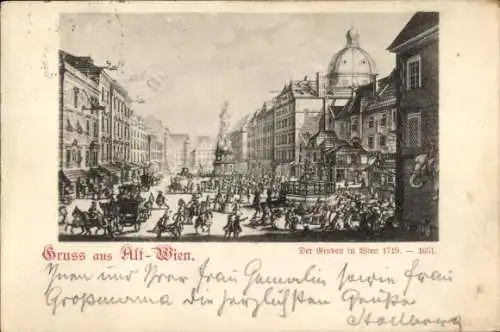 Gruss aus Alt-Wien.
Der Graben in Wien 1719. — 1651.
Ihnen und Ihrer Frau Gemahlin sowie Frau
Großmama die herzlichsten Grüße
Stollberg